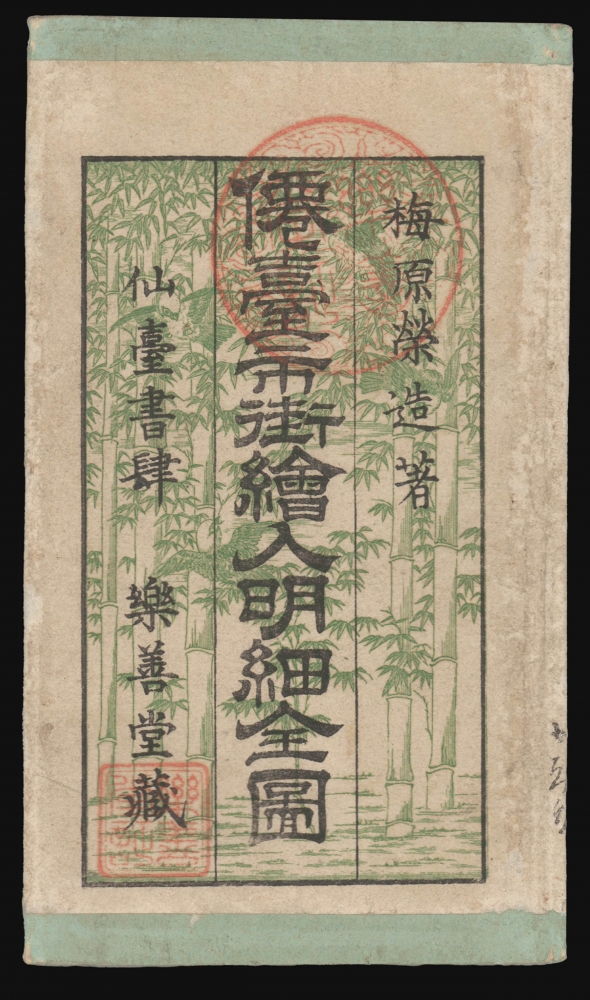 梅原榮造著
僊臺市街繪入明細全圖
仙臺書肆 樂善堂藏